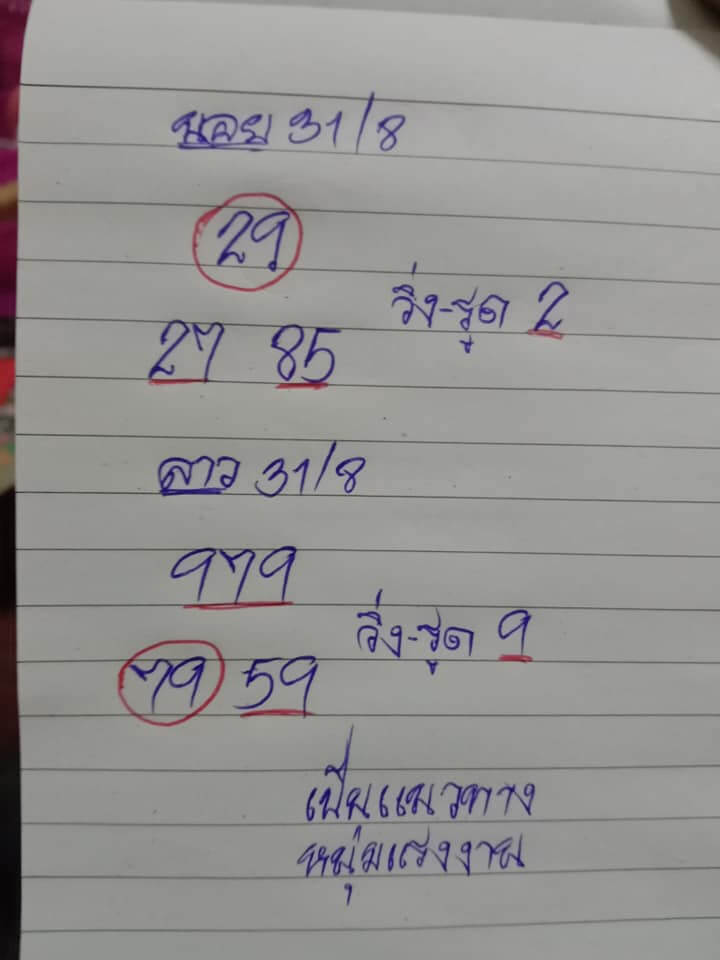 นอย 31/8
29
วิ่ง-รูด 2
27 85
ลาว 31/8
979
วิ่ง-รูด 9
79 59
เป็นแนวทาง
หนุ่มแรงงาน